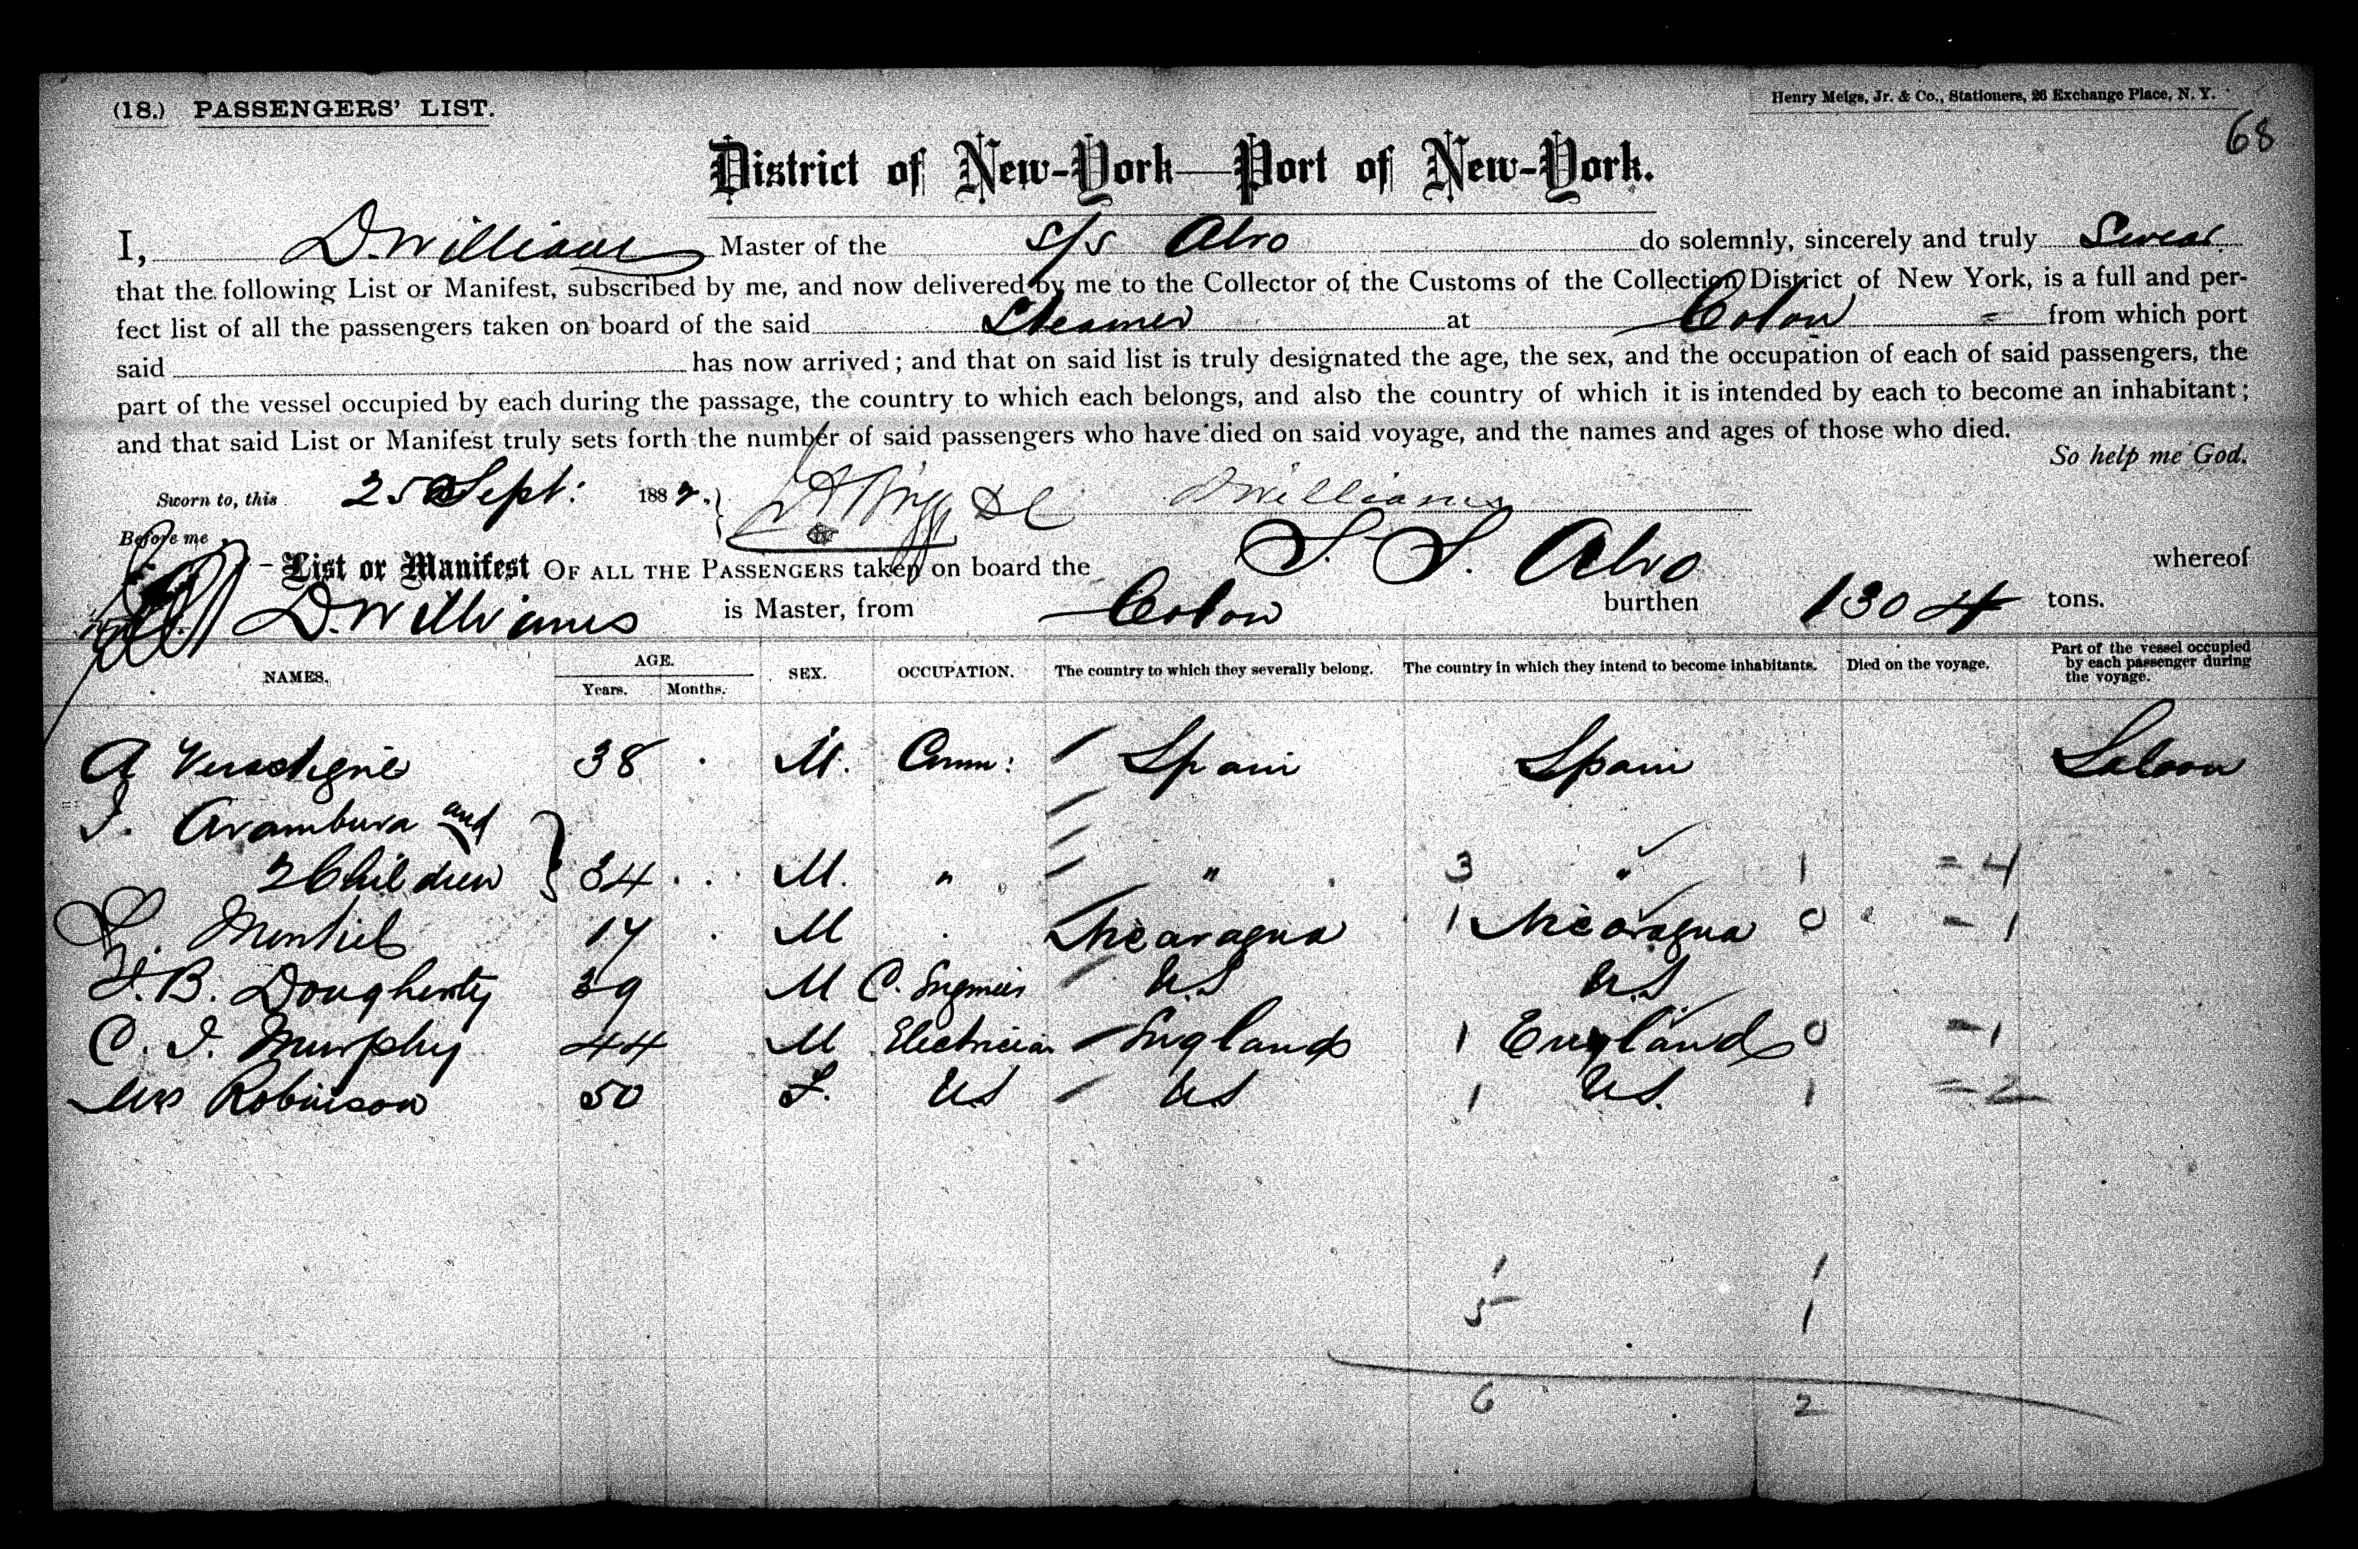 (18.) PASSENGERS' LIST.
Henry Meigs, Jr. & Co., Stationers, 26 Exchange Place, N. Y.
68
District of New-York—Port of New-York.
I, D. Williams Master of the S/S Alvo do solemnly, sincerely and truly Swear
that the following List or Manifest, subscribed by me, and now delivered by me to the Collector of the Customs of the Collection District of New York, is a full and per-
fect list of all the passengers taken on board of the said Steamer at Colon from which port
said has now arrived; and that on said list is truly designated the age, the sex, and the occupation of each of said passengers, the
part of the vessel occupied by each during the passage, the country to which each belongs, and also the country of which it is intended by each to become an inhabitant;
and that said List or Manifest truly sets forth the number of said passengers who have died on said voyage, and the names and ages of those who died.
So help me God.
Sworn to, this 25 Sept: 1882. D Williams
Before me
List or Manifest OF ALL THE PASSENGERS taken on board the S. S. Alvo whereof
D. Williams is Master, from Colon burthen 1304 tons.
NAMES. AGE. Years. Months. SEX. OCCUPATION. The country to which they severally belong. The country in which they intend to become inhabitants. Died on the voyage. Part of the vessel occupied by each passenger during the voyage.
A 38 M. Spain Spain Saloon
J. Arambura and
2 Children } 34 M. " " 3 " 1 = 4
17 M Nicaragua 1 Nicaragua 0 - 1
J. B. Dougherty 39 M C. Engineer U.S U.S
C. J. Murphy 44 M Electrician England 1 England 0 - 1
Mrs Robinson 50 F. U.S U.S 1 U.S. 1 = 2
1 1
5 1
6 2